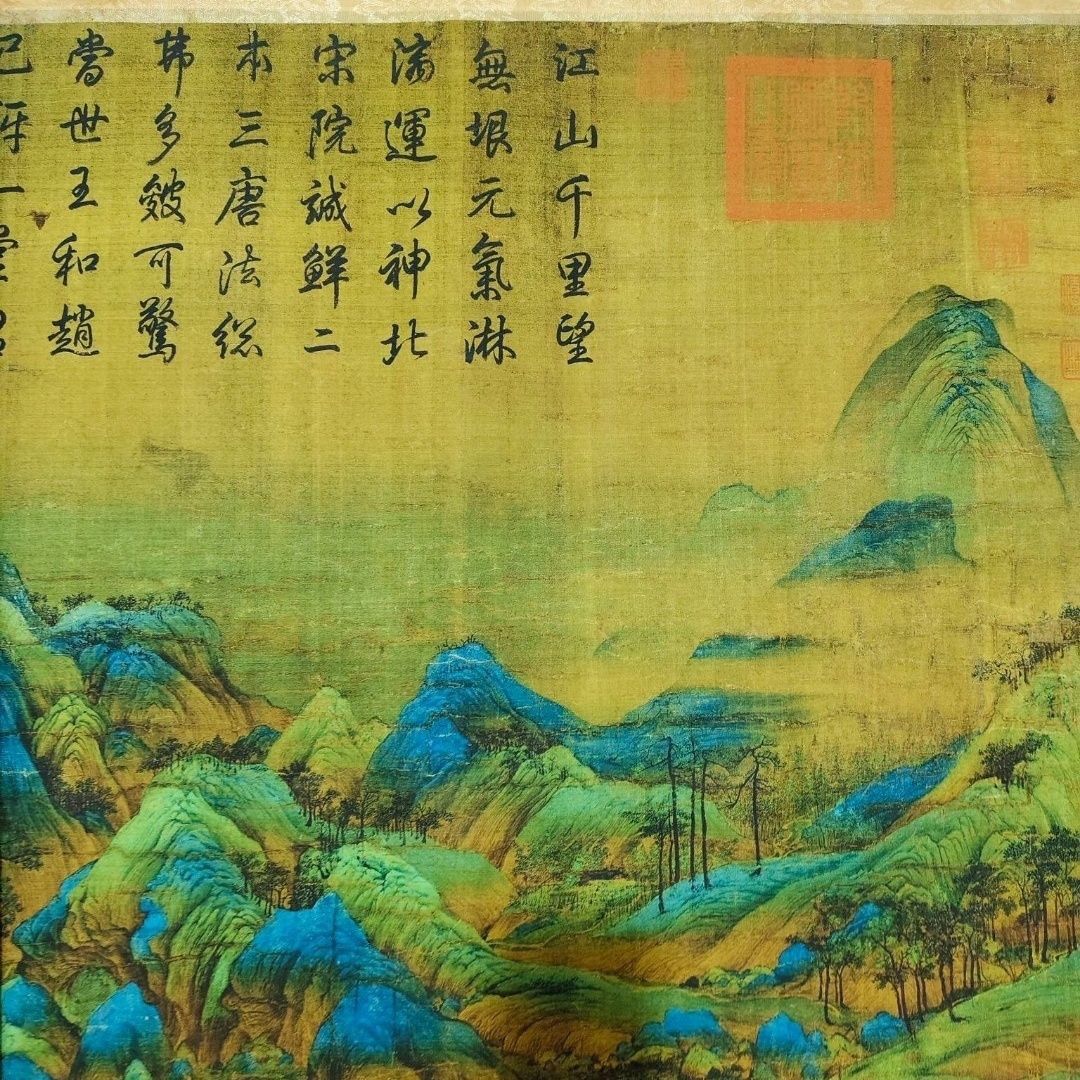 江山千里望
無垠元氣淋
漓運以神北
宋院誠鮮二
本三唐法緫
弗多皴可驚
當世王和趙
已訝一堂君